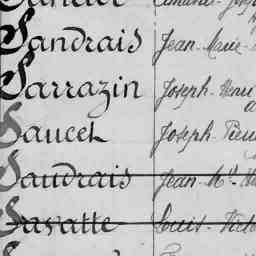 Sandrais Jean-Marie
Sarrazin Joseph Henri
Saucet Joseph Pierre
Saudrais Jean-M
Savatte Louis-Victo